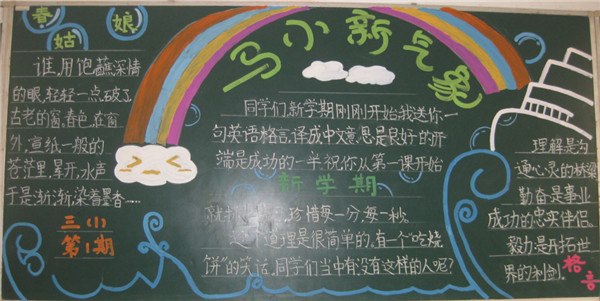 春姑娘
谁,用饱蘸深情
的眼,轻轻一点,破了
古老的窗。春色,在窗
外,宣纸一般的
苍茫里,晕开,水声
于是渐渐,染着墨香……
三(1)
第1期
马小新气象
同学们,新学期刚刚开始,我送你一
句英语格言,译成中文意思是良好的开
端是成功的一半,祝你从第一课开始
新学期
珍惜每一分,每一秒。
道理是很简单的。有一个“吃烧
饼”的笑话,同学们当中有没有这样的人呢?
理解是沟
通心灵的桥梁
勤奋是事业
成功的忠实伴侣。
毅力是开拓世
界的利剑。
格言